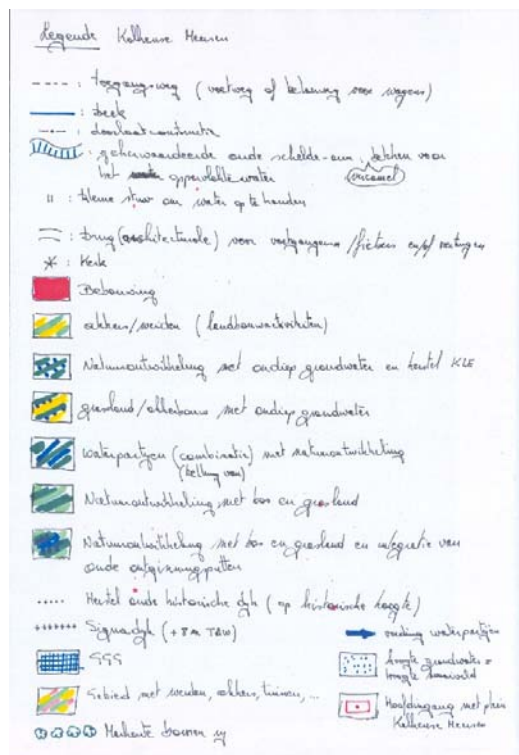 Legende Kalkense Meersen
: toegangsweg (voetweg of betonweg voor wagens)
: beek
: doorlaatconstructie
: geherwaardeerde oude schelde-arm, bekken voor
het oppervlakte water
: kleine stuw om water op te houden
: brug (architecturale) voor voetgangers / fietsers en/of voertuigen
: Kerk
Bebouwing
akkers/weiden (landbouwactiviteiten)
Natuurontwikkeling met ondiep grondwater en herstel KLE
grasland/akkerbouw met ondiep grondwater
Waterpartijen (combinatie) met natuurontwikkeling
Natuurontwikkeling met bos en grasland
Natuurontwikkeling met bos en grasland en integratie van
oude ontginningsputten
Herstel oude historische dijk (op historische hoogte)
Sigmadijk (+8m TAW)
voeding waterpartijen
GGG
hoogte grondwater =
hoogte maaiveld
Gebied met weiden, akkers, tuinen, ...
Hoofdingang met plein
Kalkense Meersen
Markante bomen rij